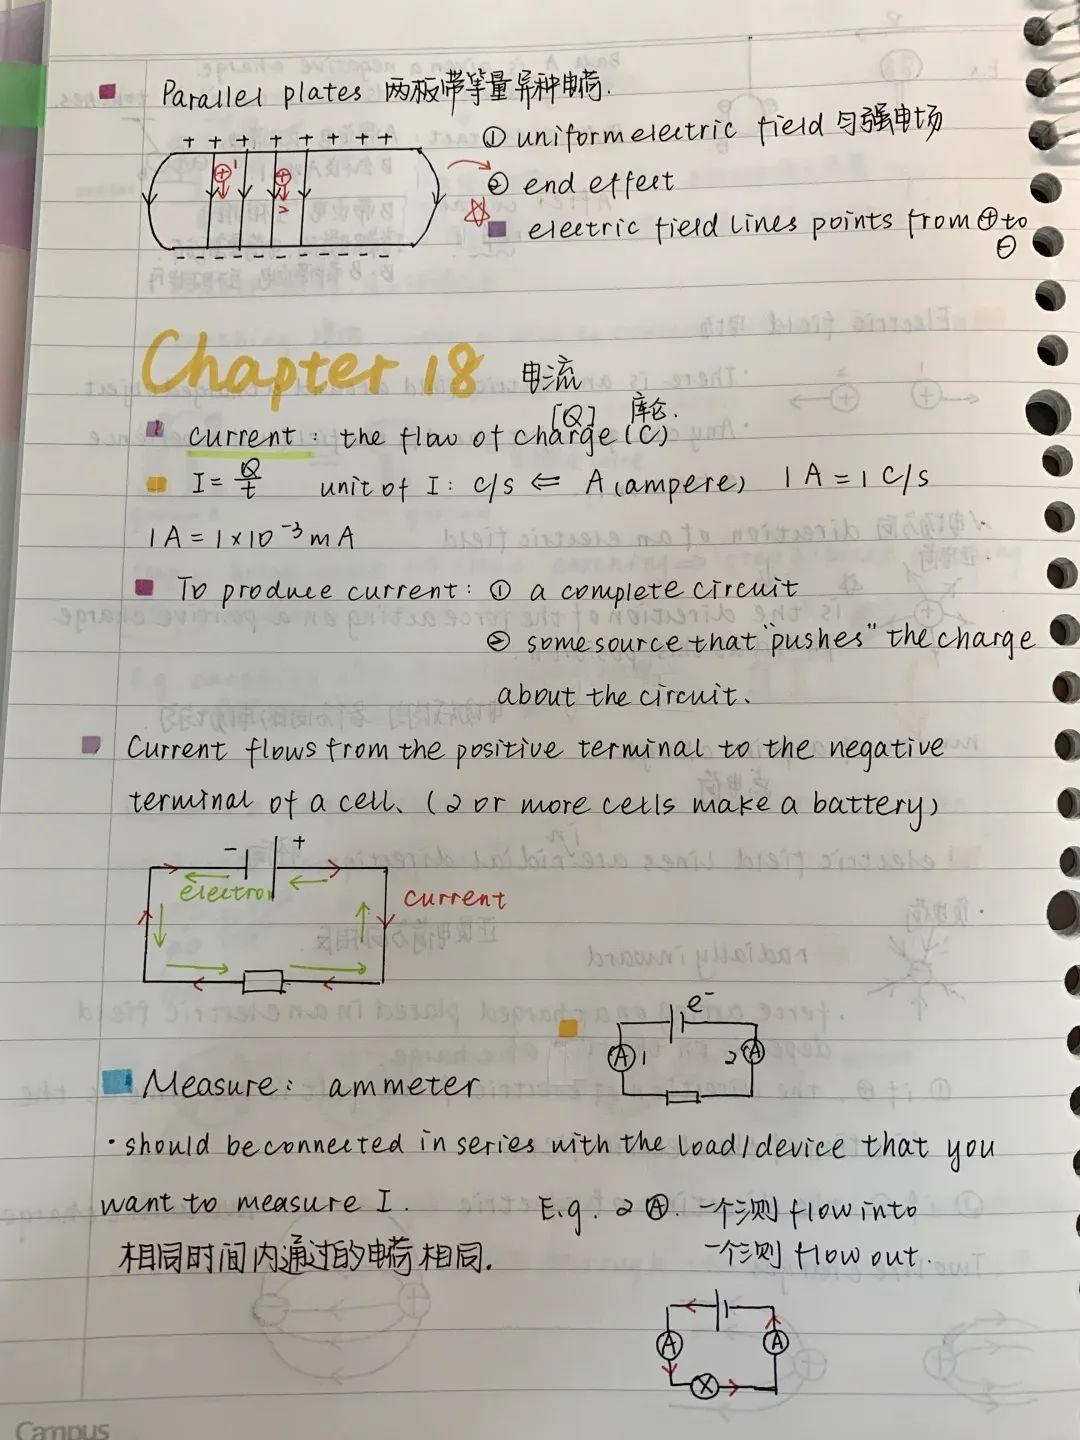 Parallel plates 两板带等量异种电荷.
+ + + + + + + +
① uniform electric field 匀强电场
② end effect
electric field lines points from ⊕ to ⊖
- - - - - - - - - -
Chapter 18 电流
[Q] 库仑.
current : the flow of charge (C)
I = Q/t unit of I: C/s ⇐ A (ampere) 1 A = 1 C/s
1 A = 1×10⁻³ mA
To produce current: ① a complete circuit
② some source that "pushes" the charge
about the circuit.
Current flows from the positive terminal to the negative
terminal of a cell. (2 or more cells make a battery)
- +
electron
current
e⁻
A 1 2 A
Measure: ammeter
· should be connected in series with the load/device that you
want to measure I. E.g. 2 Ⓐ. 一个测 flow into
相同时间内通过的电荷相同. 一个测 flow out.
A A
Campus